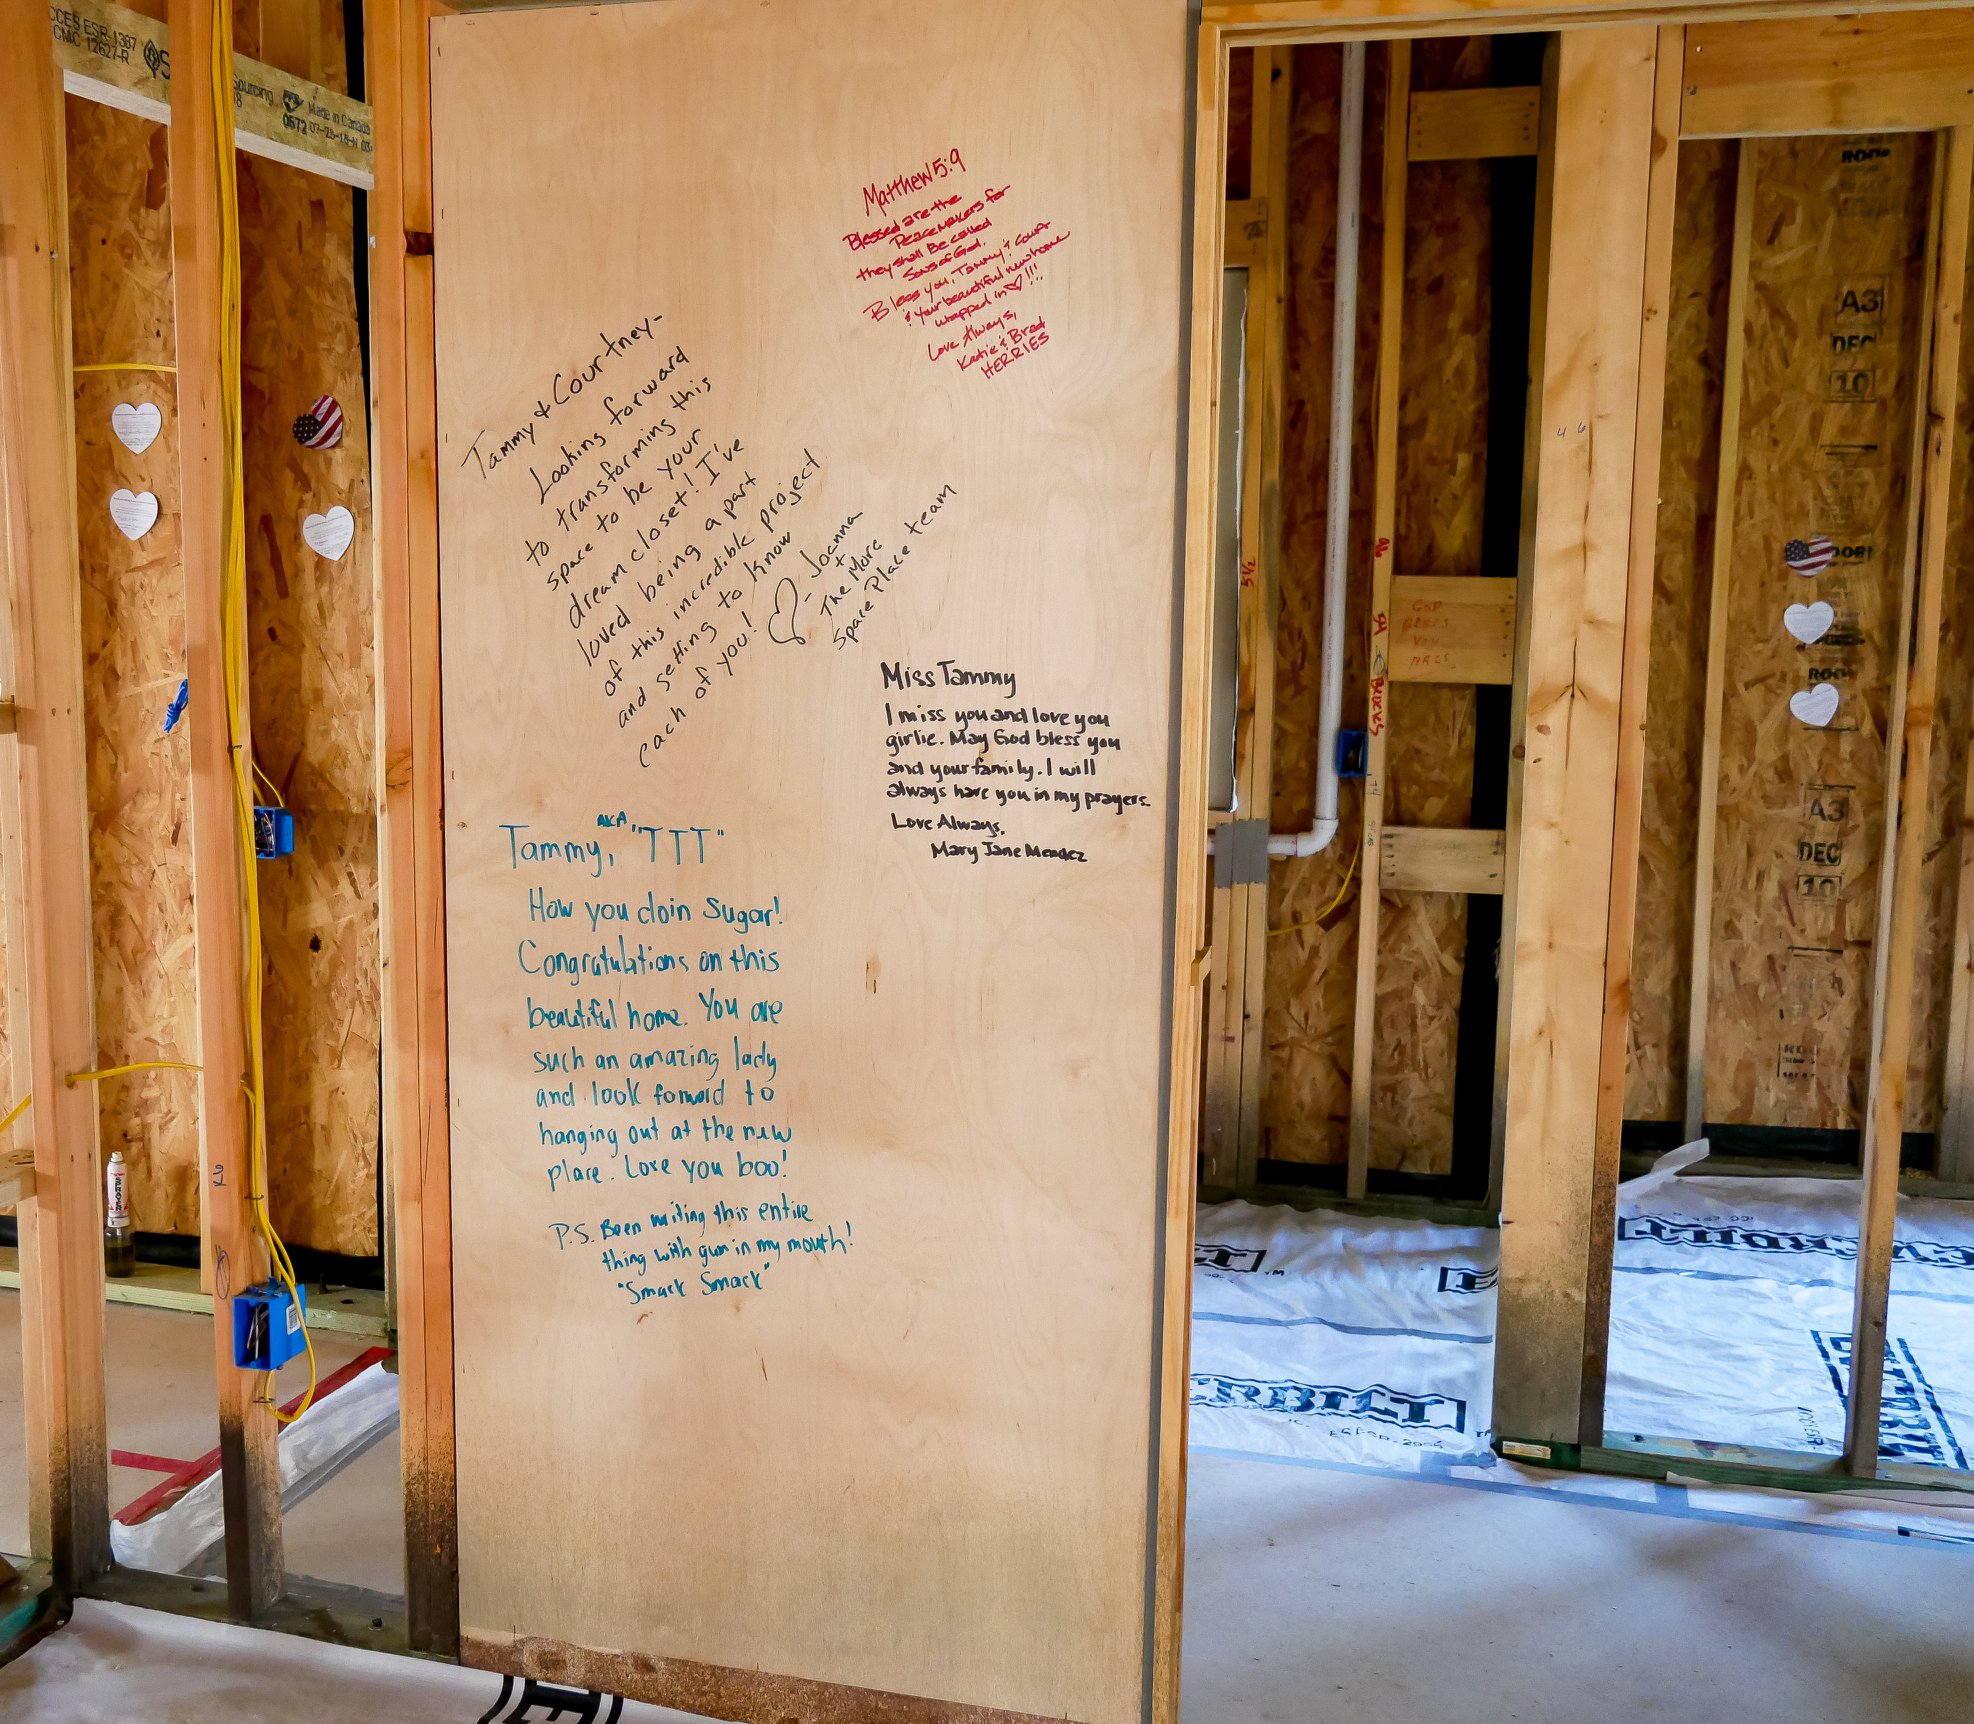 CCES ESR-1387
CMC 12627-R
Sourcing
Made in Canada
0672 07-26-18-N 03
Matthew 5:9
Blessed are the
Peacemakers for
they shall Be called
Sons of God.
Bless you, Tammy & Court
& your beautiful new home
wrapped in ♡!!!
Love Always,
Katie & Brad
HERRIES
Tammy & Courtney-
Looking forward
to transforming this
space to be your
dream closet! I've
loved being a part
of this incredible project
and getting to know
each of you!
- Joanna
+
The More
Space Place team
Miss Tammy
I miss you and love you
girlie. May God bless you
and your family. I will
always have you in my prayers.
Love Always,
Mary Jane Mendez
AKA
Tammy, "TTT"
How you doin Sugar!
Congratulations on this
beautiful home. You are
such an amazing lady
and look forward to
hanging out at the new
place. Love you boo!
P.S. Been writing this entire
thing with gum in my mouth!
"Smack Smack"
46
5 1/2
GOD
BLESS
YOU
A3
DEC
10
ROO
A3
DEC
10
SPRAYER
ERBILT
EVERBILT